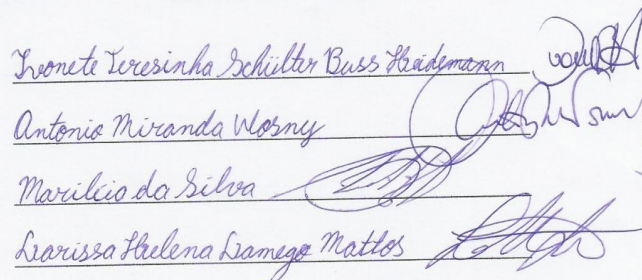 Ivonete Teresinha Schülter Buss Heidemann
Antonio Miranda Wosny
Marilcio da Silva
Larissa Helena Lamego Mattos